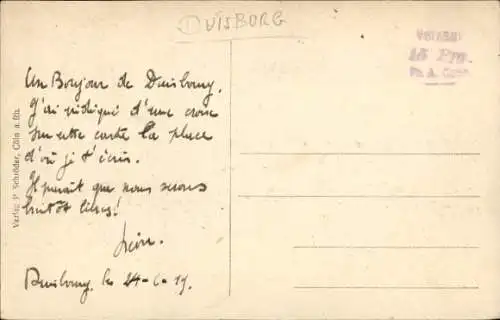 DUISBURG
15 Pfg.
Un Bonjour de Duisbourg.
J'ai indiqué d'une croix
sur cette carte la place
d'où je t'écris.
Il parait que nous serons
bientôt libres!
Léon.
Duisbourg, le 24-6-19.
Verlag P. Schröder, Cöln a. Rh.